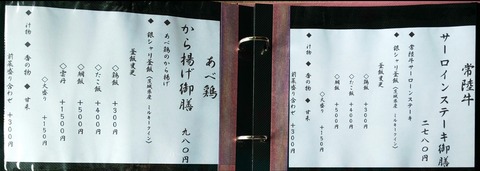 常陸牛
サーロインステーキ御膳
二七八〇円
◆常陸牛サーロインステーキ
◆銀シャリ釜飯(茨城県産 ミルキークイーン)
釜飯変更
◇鶏飯 +300円
◇たこ飯 +400円
◇鯛飯 +500円
◇雲丹 +1500円
◆汁物 ◆香の物 ◆甘味
◇大盛り +150円
前菜盛り合わせ +300円
あべ鶏
から揚げ御膳
九八〇円
◆あべ鶏のから揚げ
◆銀シャリ釜飯(茨城県産 ミルキークイーン)
釜飯変更
◇鶏飯 +300円
◇たこ飯 +400円
◇鯛飯 +500円
◇雲丹 +1500円
◆汁物 ◆香の物 ◆甘味
◇大盛り +150円
前菜盛り合わせ +300円